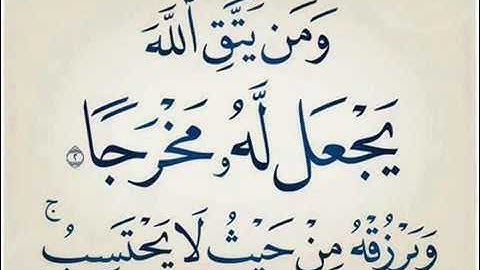 وَمَن يَتَّقِ ٱللَّهَ
يَجْعَل لَّهُۥ مَخْرَجًا ٢
وَيَرْزُقْهُ مِنْ حَيْثُ لَا يَحْتَسِبُ ۚ